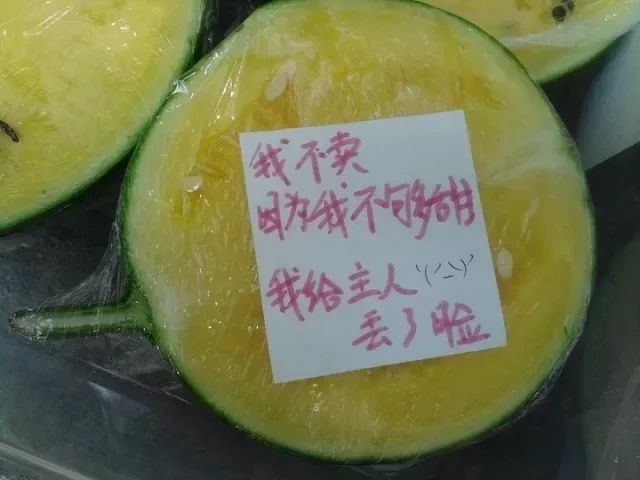 我不卖
因为我不够甜
我给主人 ヽ(´_`)ノ
丢了脸